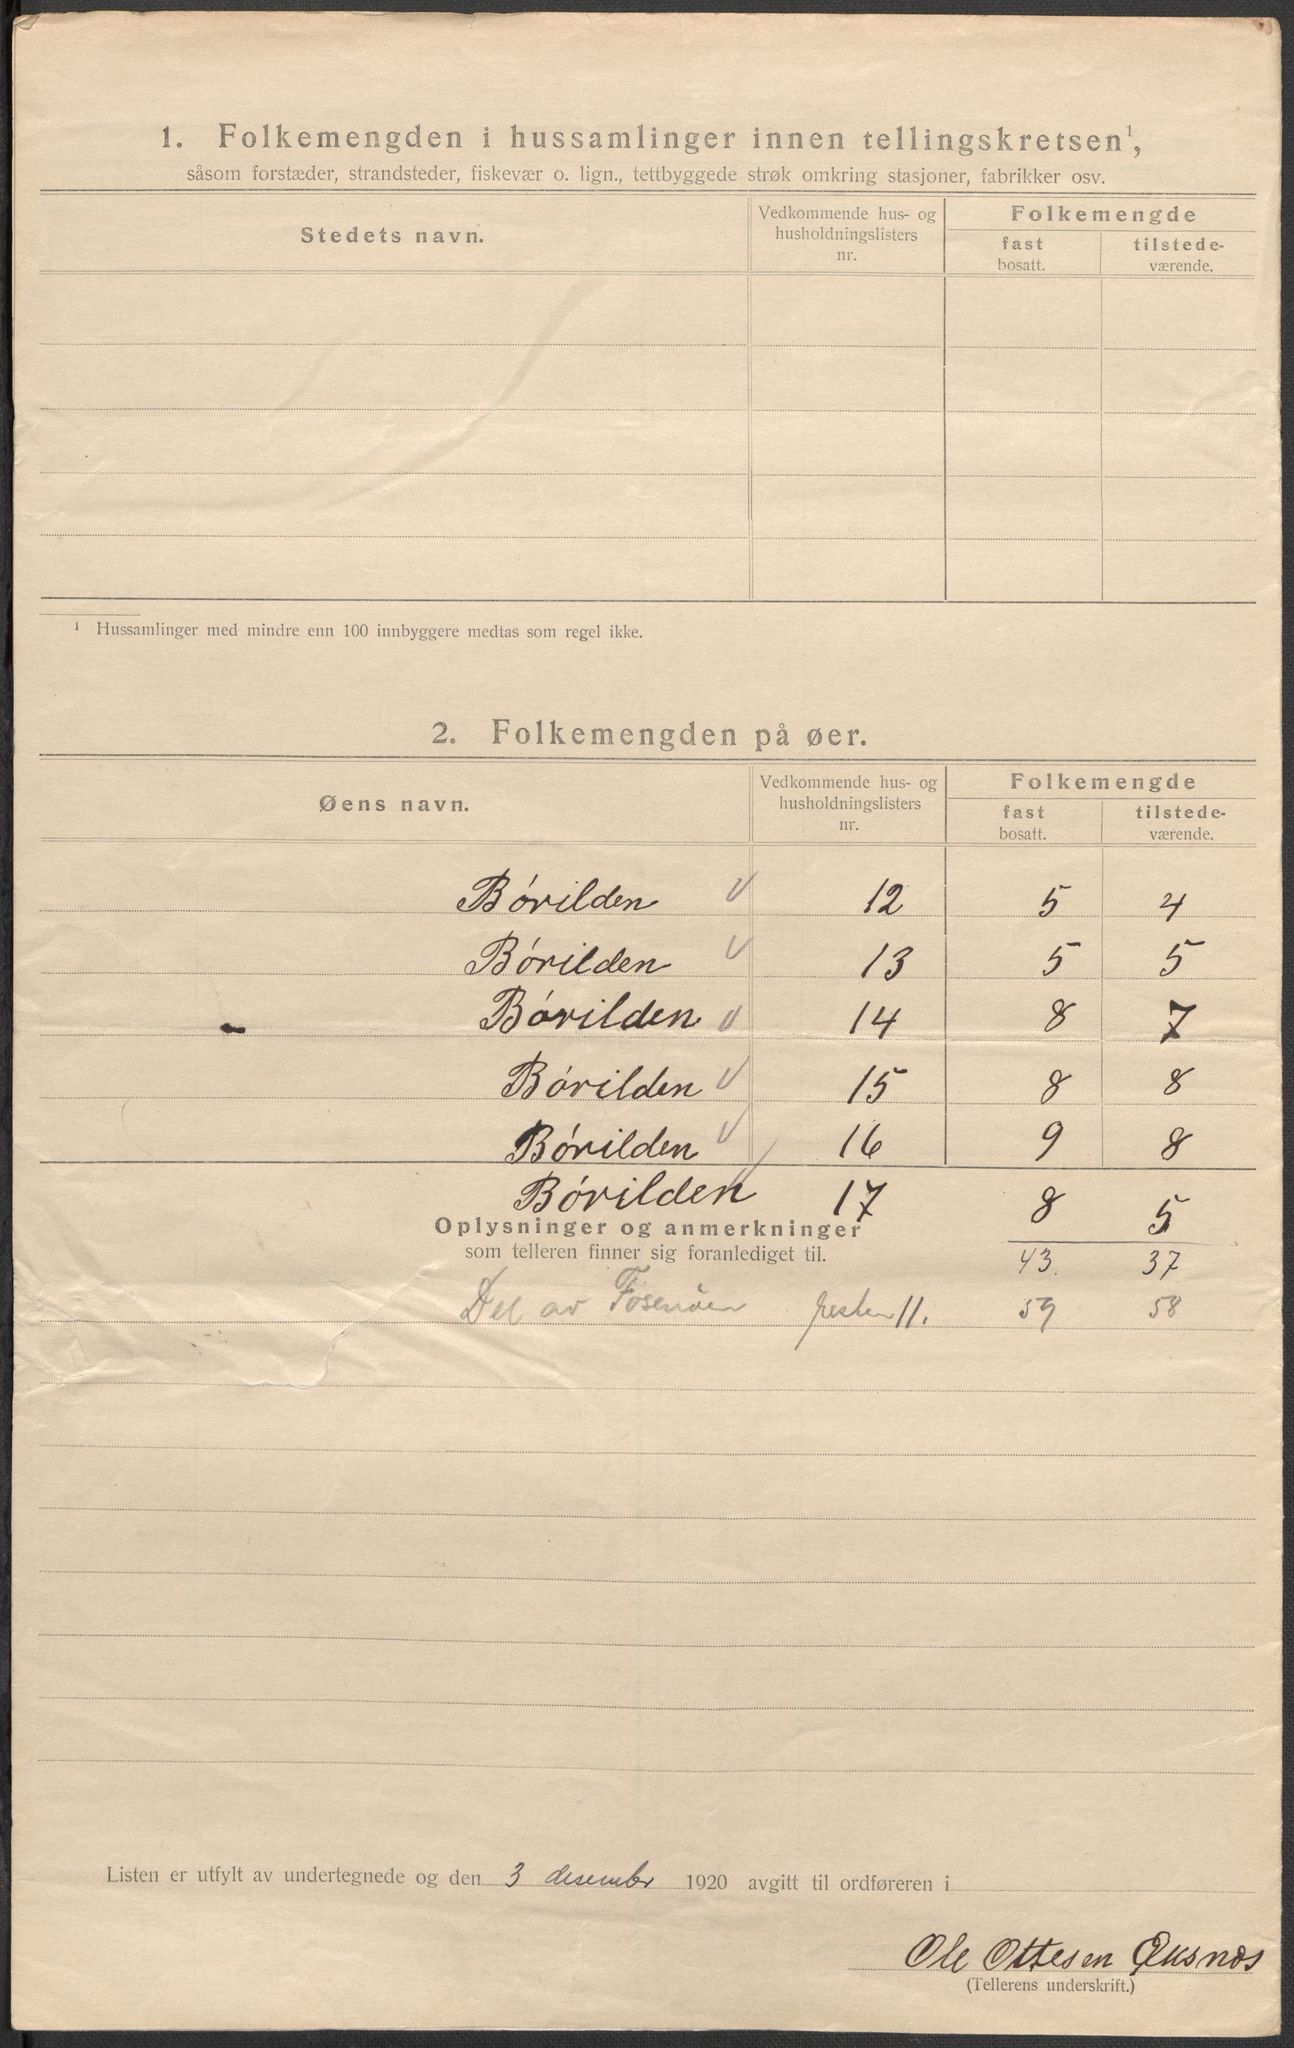 1. Folkemengden i hussamlinger innen tellingskretsen¹,
såsom forstæder, strandsteder, fiskevær o. lign., tettbyggede strøk omkring stasjoner, fabrikker osv.
Stedets navn.
Vedkommende hus- og
husholdningslisters
nr.
Folkemengde
fast
bosatt.
tilstede-
værende.
¹ Hussamlinger med mindre enn 100 innbyggere medtas som regel ikke.
2. Folkemengden på øer.
Øens navn.
Vedkommende hus- og
husholdningslisters
nr.
Folkemengde
fast
bosatt.
tilstede-
værende.
Börilden 12 5 4
Börilden 13 5 5
Börilden 14 8 7
Börilden 15 8 8
Börilden 16 9 8
Börilden 17 8 5
Oplysninger og anmerkninger
som telleren finner sig foranlediget til.
43. 37
Del av Fosenöen 11. 59 58
Listen er utfylt av undertegnede og den 3 desember 1920 avgitt til ordføreren i
Ole Ottesen Øksnæs
(Tellerens underskrift.)